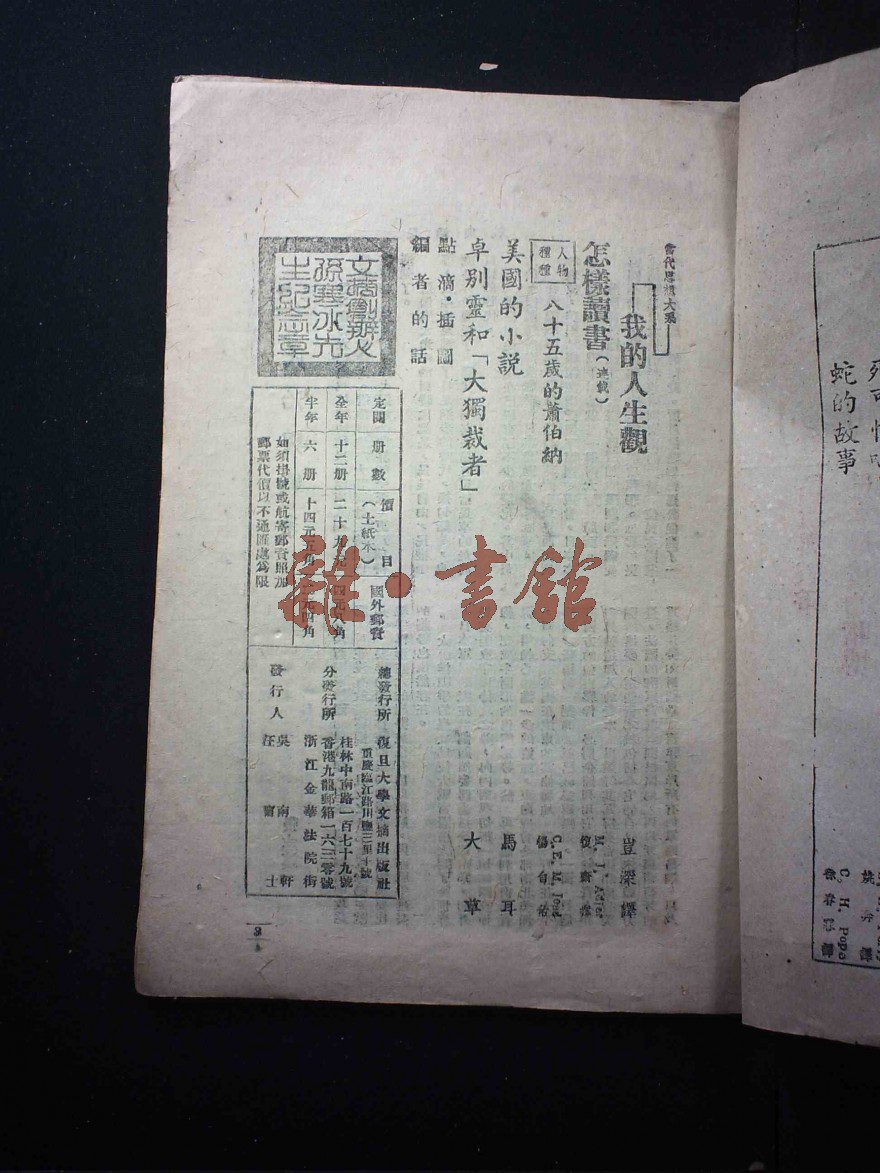 當代思想大系
我的人生觀
豈深譯
怎樣讀書(連載)
M. J. Adler
人物種種
八十五歲的蕭伯納
美國的小説
馬耳
卓別靈和「大獨裁者」
大草
點滴·插圖
編者的話
文摘創辦人
孫寒冰先
生紀念章
定閱 册數 價目(土紙本) 國外郵費
全年 十二册 二十九元 四元八角
半年 六册 十四元五角 二元四角
如須掛號或航寄郵資照加
郵票代價以不通匯處爲限
總發行所 復旦大學文摘出版社
重慶臨江路川鹽三里十號
分發行所
桂林中南路一百七十九號
香港九龍郵箱一六三零號
浙江金華法院街
發行人
吳南軒
汪士
雜·書館
死可怕
蛇的故事
C. H. Pope